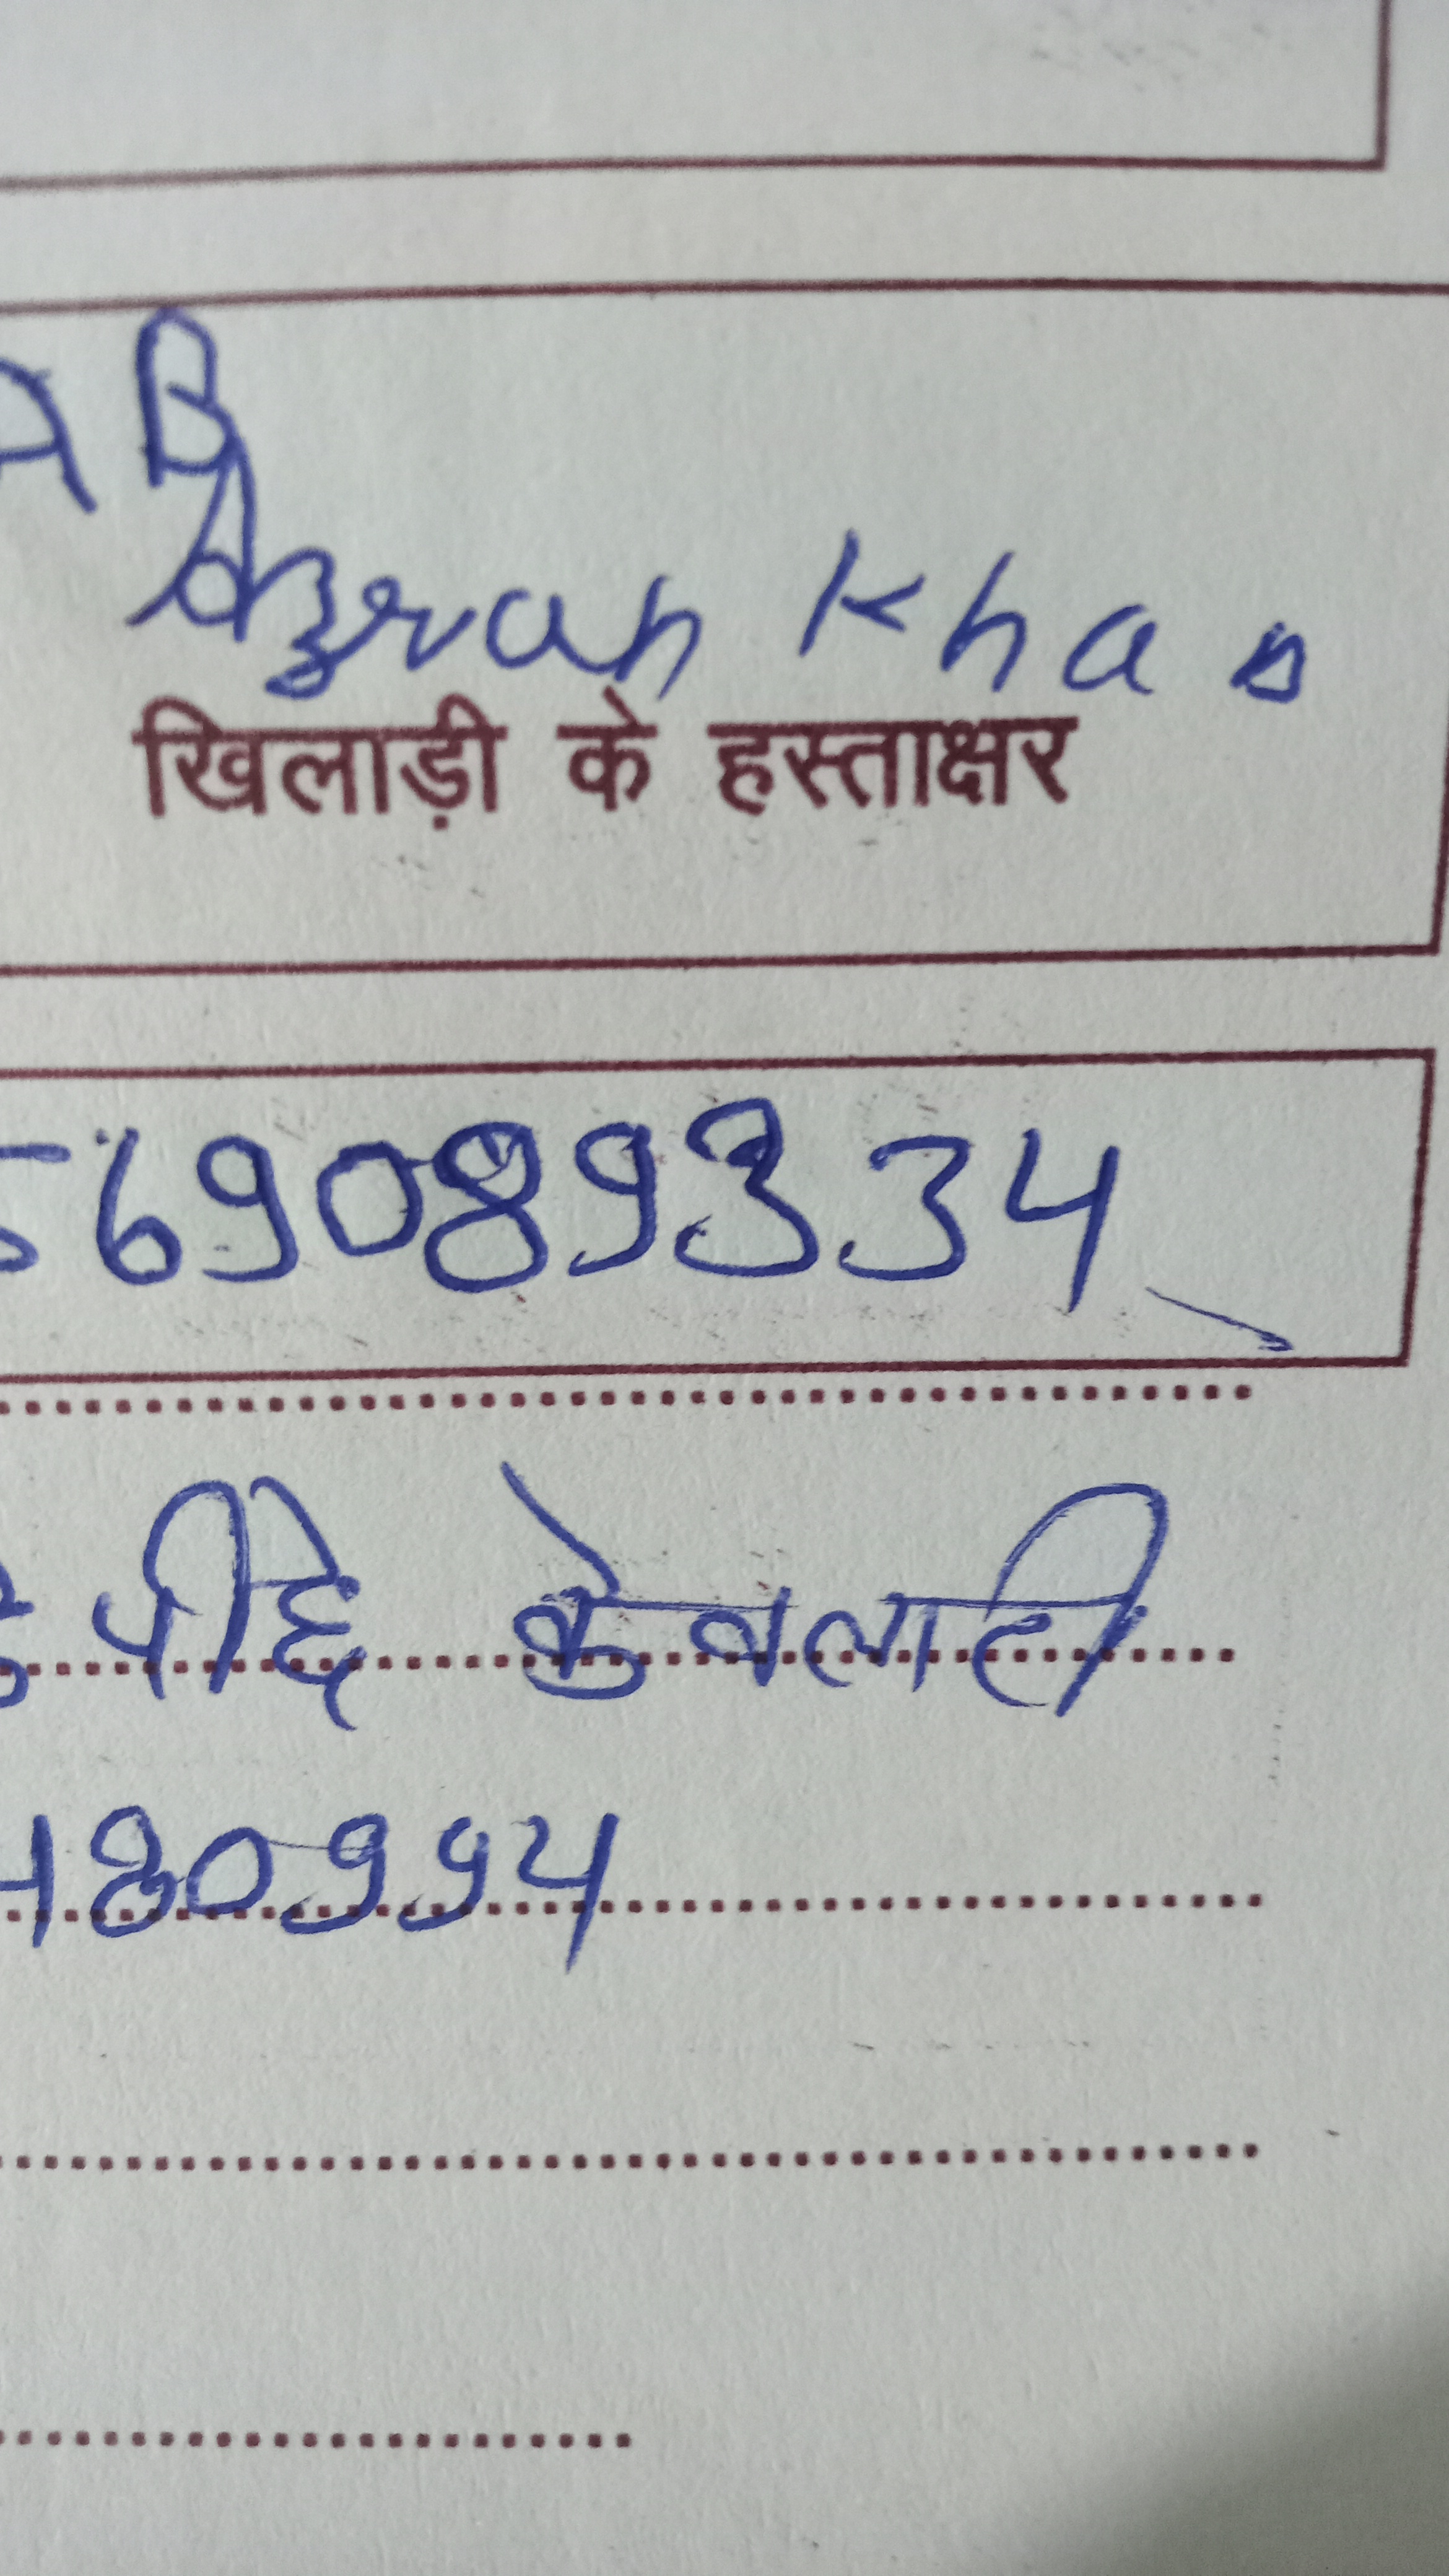 AB
Azran Khan
खिलाड़ी के हस्ताक्षर
5690899334
के पीछे केवलारी
480994